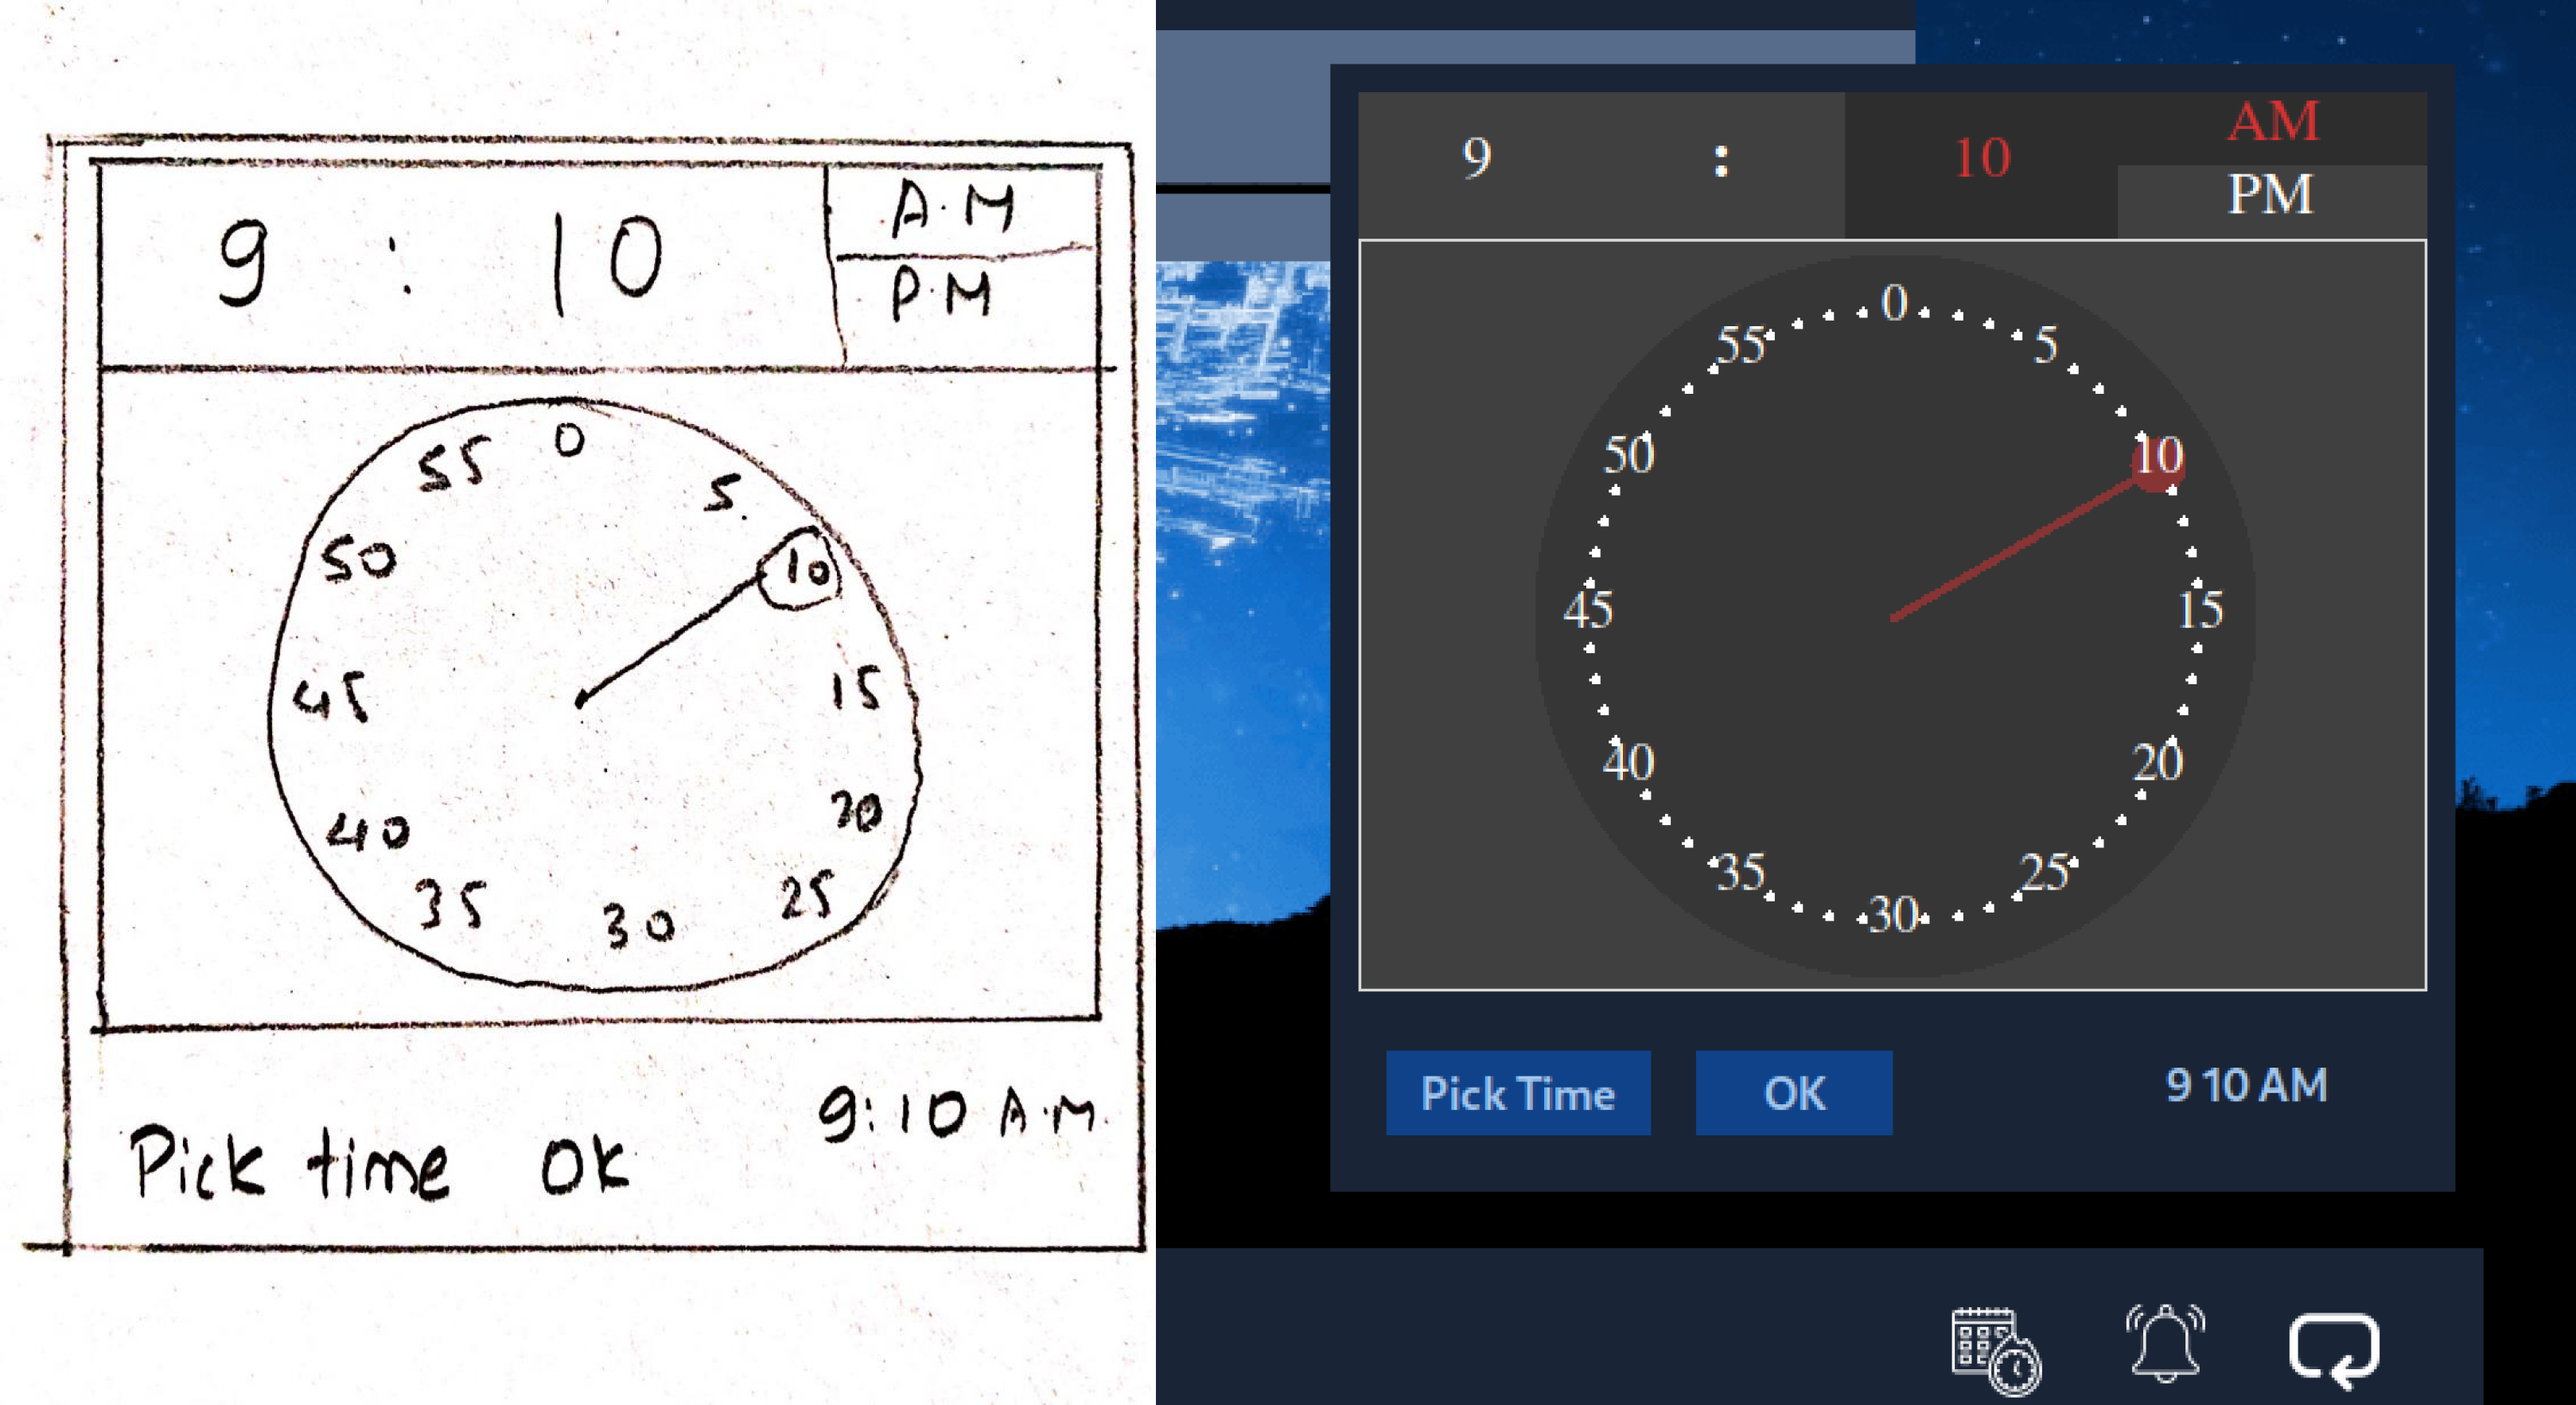 9 : 10
A.M
P.M
0
5
10
15
20
25
30
35
40
45
50
55
Pick time OK 9:10 A.M.
9 : 10
AM
PM
0
5
10
15
20
25
30
35
40
45
50
55
Pick Time OK 9 10 AM